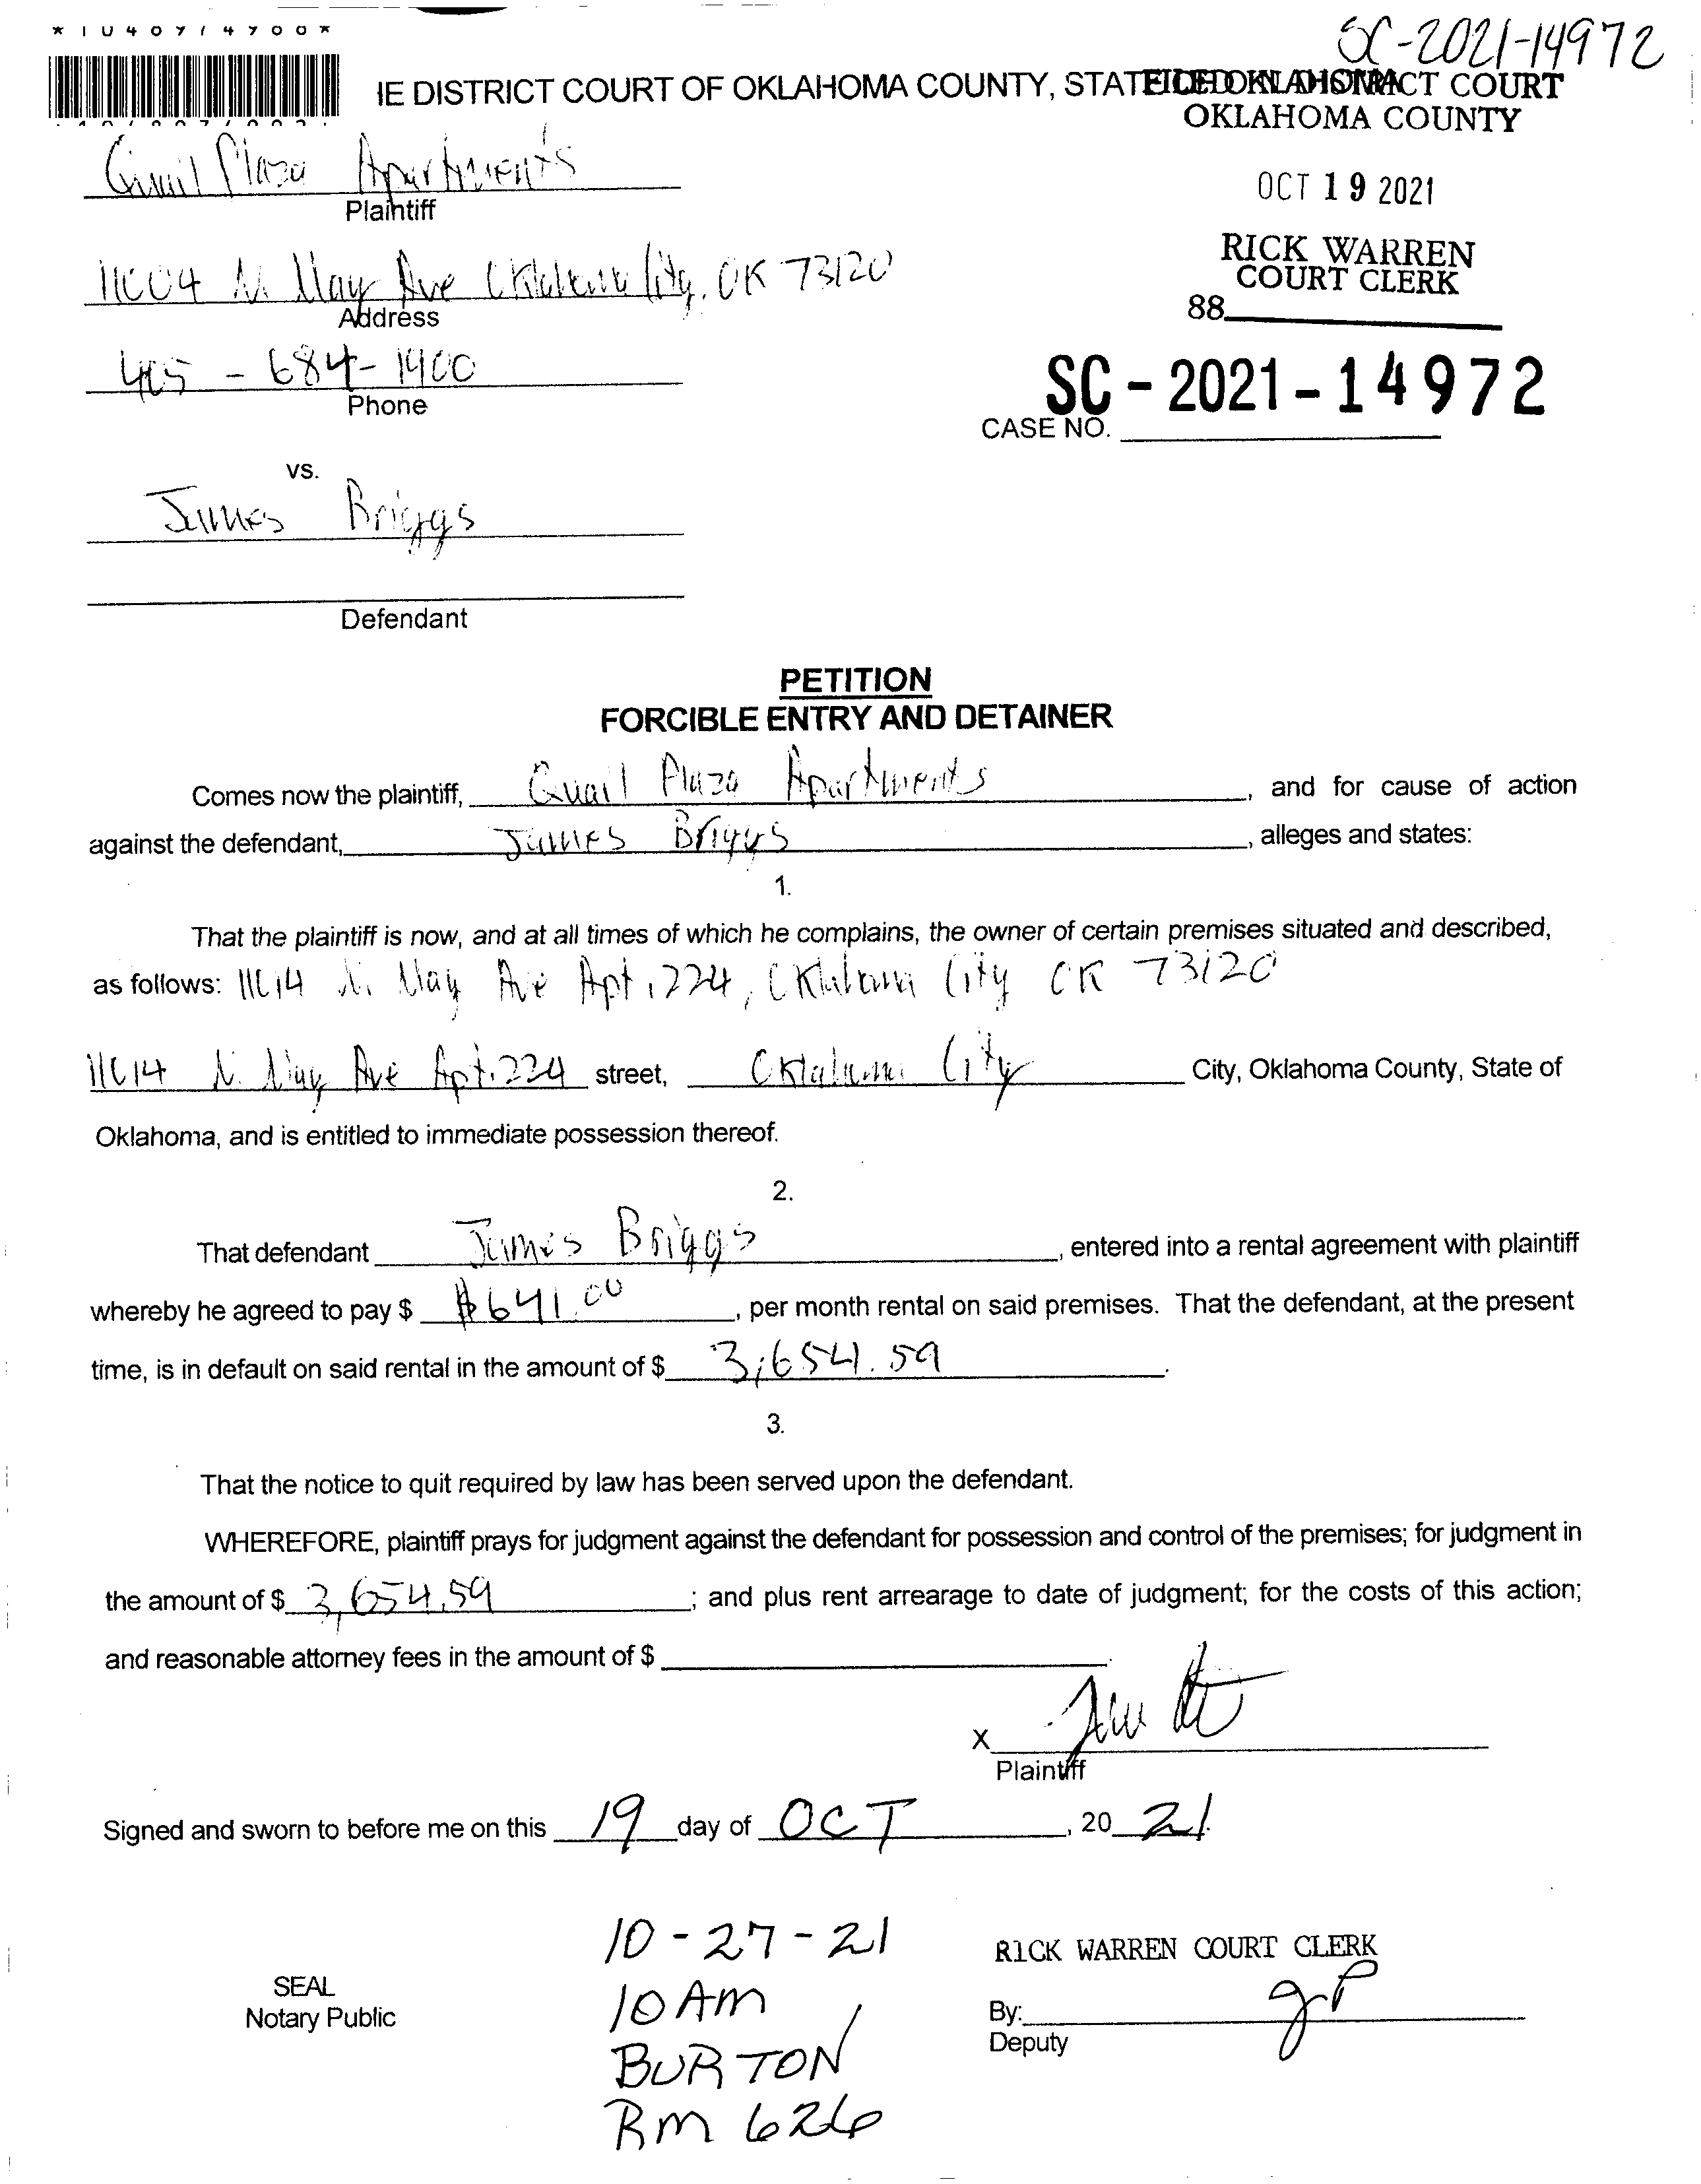 SC-2021-14972
IE DISTRICT COURT OF OKLAHOMA COUNTY, STATE OF OKLAHOMA
FILED IN DISTRICT COURT
OKLAHOMA COUNTY
OCT 19 2021
RICK WARREN
COURT CLERK
88
SC-2021-14972
CASE NO.
Quail Plaza Apartments
Plaintiff
N May Ave Oklahoma City, OK 73120
Address
405-684-1400
Phone
vs.
James Briggs
Defendant
PETITION
FORCIBLE ENTRY AND DETAINER
Comes now the plaintiff, Quail Plaza Apartments, and for cause of action
against the defendant, James Briggs, alleges and states:
1.
That the plaintiff is now, and at all times of which he complains, the owner of certain premises situated and described,
as follows: 11614 N. May Ave Apt. 224, Oklahoma City OK 73120
11614 N. May Ave Apt. 224 street, Oklahoma City City, Oklahoma County, State of
Oklahoma, and is entitled to immediate possession thereof.
2.
That defendant James Briggs, entered into a rental agreement with plaintiff
whereby he agreed to pay $ $641.00, per month rental on said premises. That the defendant, at the present
time, is in default on said rental in the amount of $ 3,654.59.
3.
That the notice to quit required by law has been served upon the defendant.
WHEREFORE, plaintiff prays for judgment against the defendant for possession and control of the premises; for judgment in
the amount of $ 3,654.59; and plus rent arrearage to date of judgment; for the costs of this action;
and reasonable attorney fees in the amount of $
X
Plaintiff
Signed and sworn to before me on this 19 day of OCT, 20 21.
10-27-21
10 AM
BURTON
RM 626
SEAL
Notary Public
RICK WARREN COURT CLERK
By: JP
Deputy